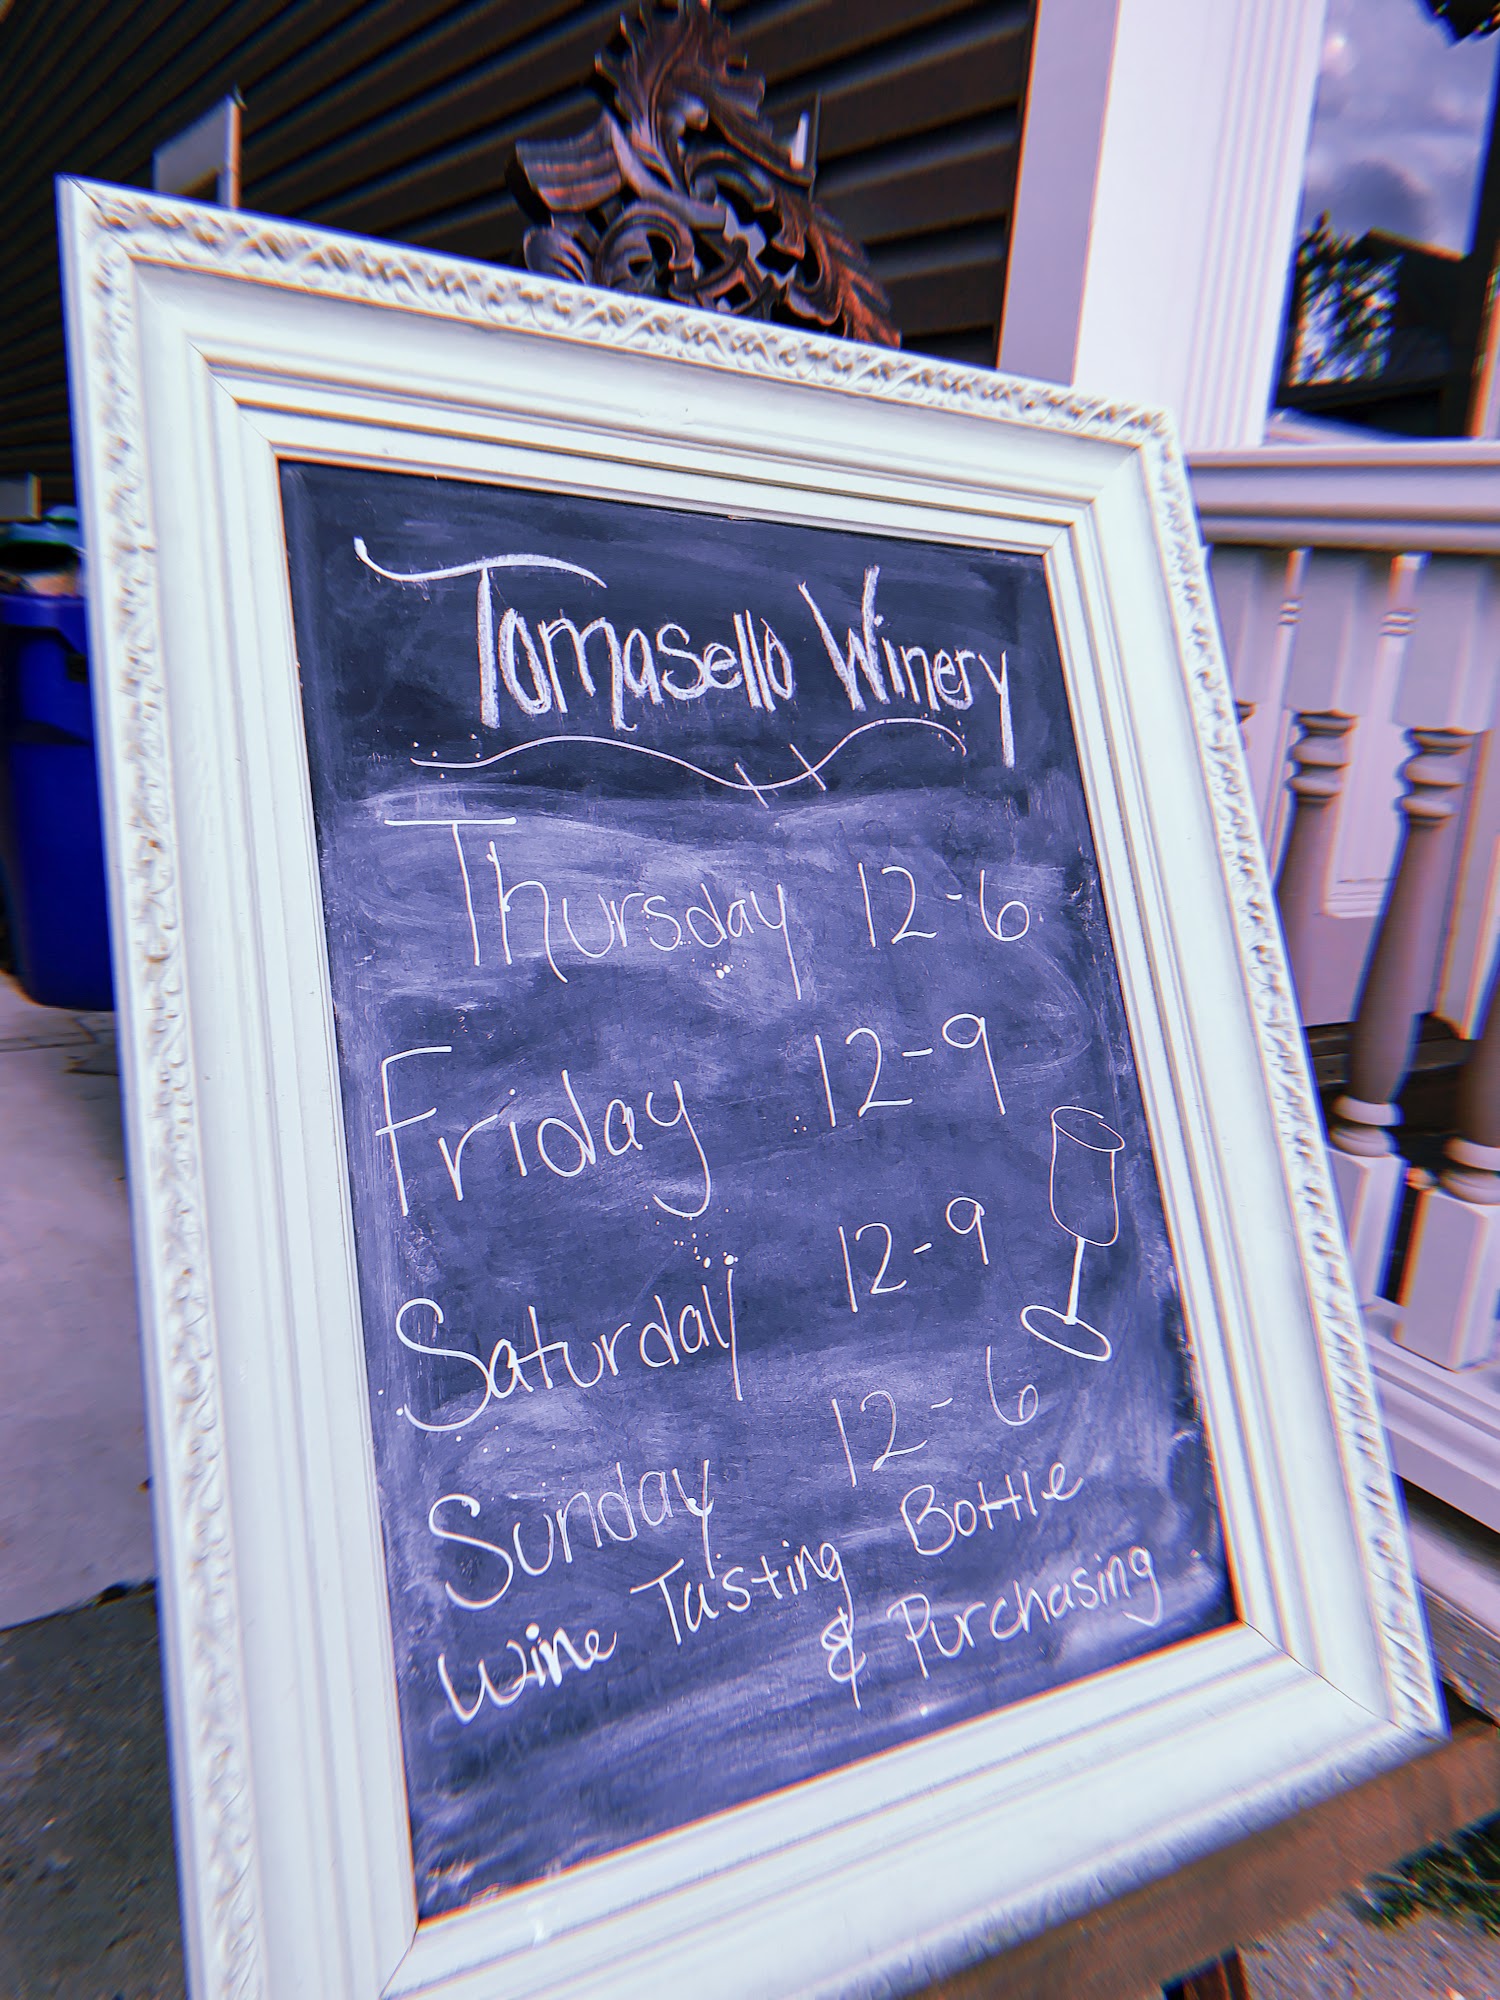 Tomasello Winery
Thursday 12-6
Friday 12-9
Saturday 12-9
Sunday 12-6
Wine Tasting Bottle
& Purchasing